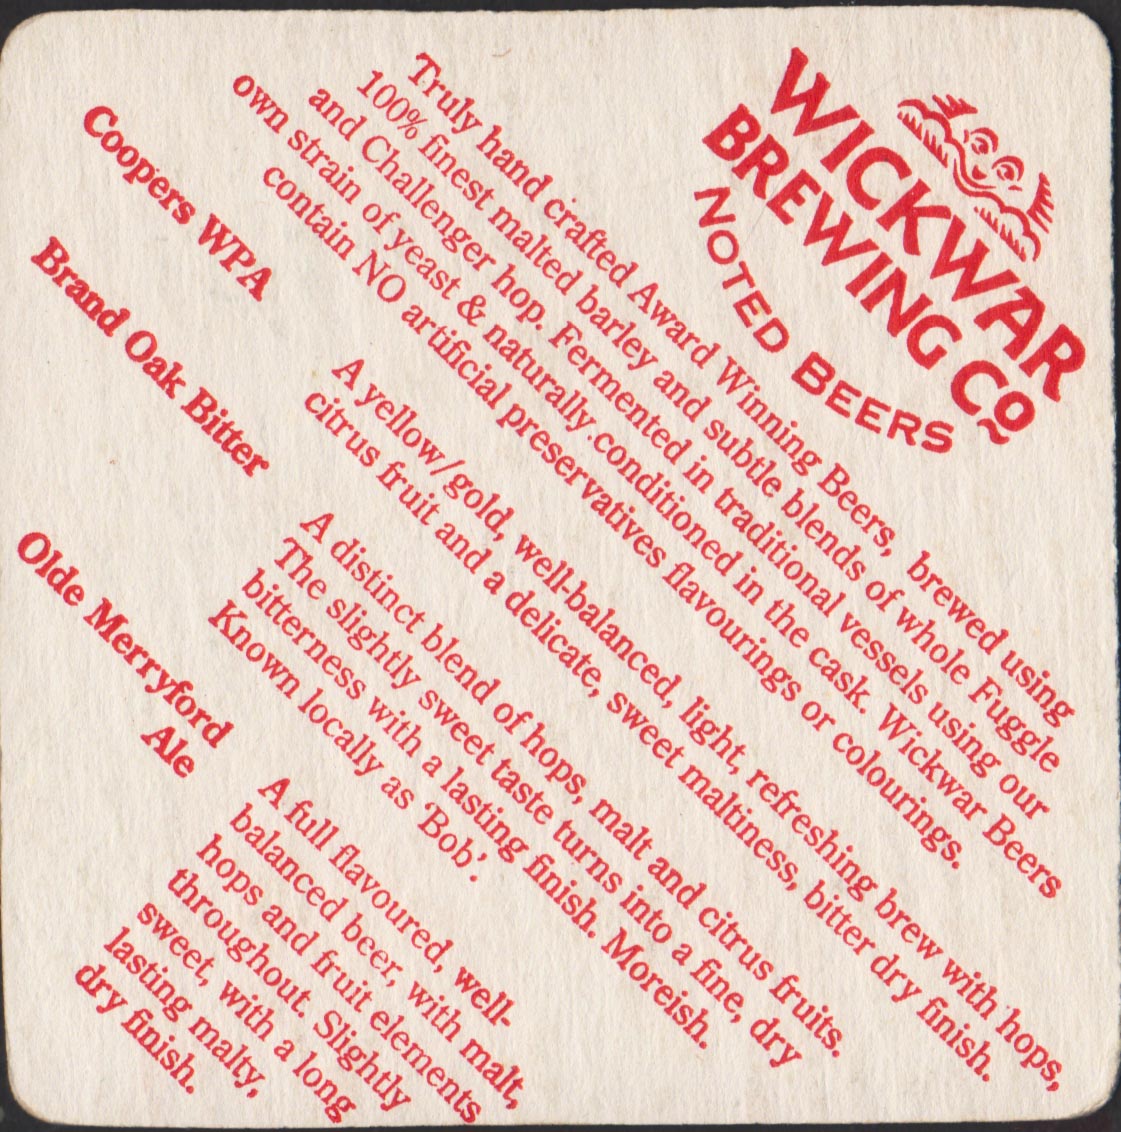 WICKWAR
BREWING Co
NOTED BEERS
Truly hand crafted Award Winning Beers, brewed using
100% finest malted barley and subtle blends of whole Fuggle
and Challenger hop. Fermented in traditional vessels using our
own strain of yeast & naturally conditioned in the cask. Wickwar Beers
contain NO artificial preservatives flavourings or colourings.
Coopers WPA
A yellow/gold, well-balanced, light, refreshing brew with hops,
citrus fruit and a delicate, sweet maltiness, bitter dry finish.
Brand Oak Bitter
A distinct blend of hops, malt and citrus fruits.
The slightly sweet taste turns into a fine, dry
bitterness with a lasting finish. Moreish.
Known locally as 'Bob'.
Olde Merryford
Ale
A full flavoured, well-
balanced beer, with malt,
hops and fruit elements
throughout. Slightly
sweet, with a long
lasting malty,
dry finish.